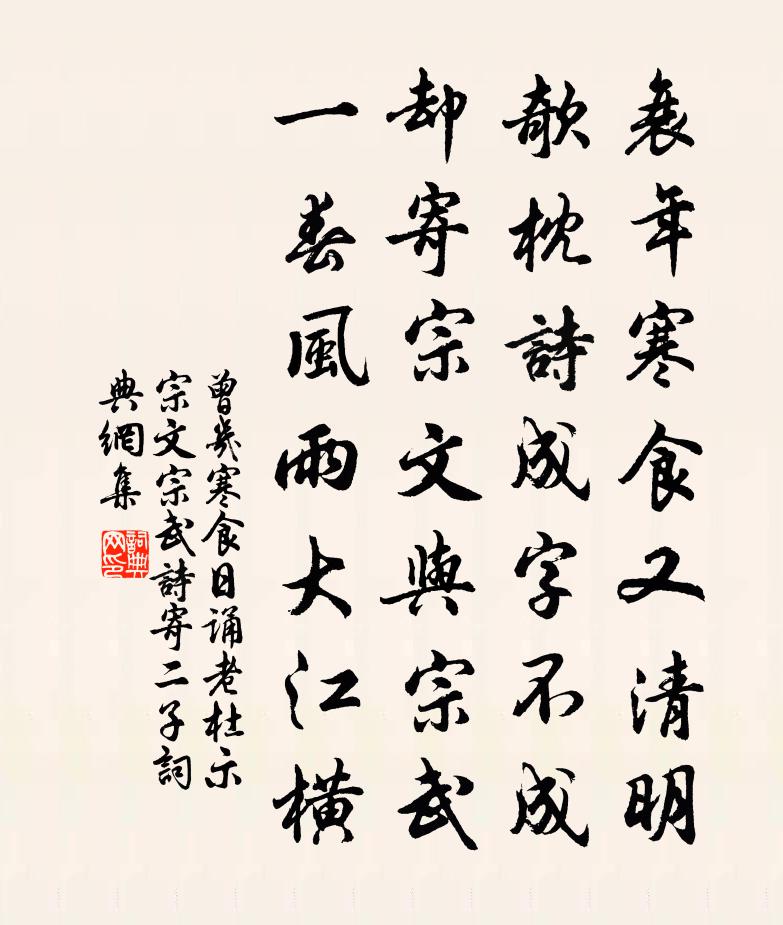 衰年寒食又清明
欹枕詩成字不成
却寄宗文與宗武
一春風雨大江橫
曾幾寒食日誦老杜示
宗文宗武詩寄二子詞
典網集
詞典网印